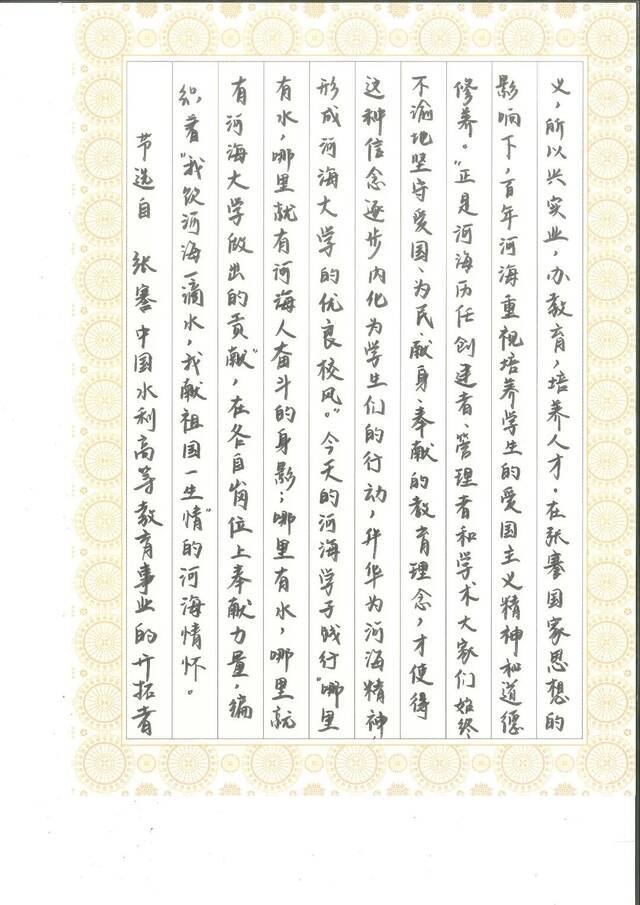 义，所以兴实业，办教育，培养人才。在张謇国家思想的
影响下，百年河海重视培养学生的爱国主义精神和道德
修养。“正是河海历任创建者、管理者和学术大家们始终
不渝地坚守爱国、为民、献身、奉献的教育理念，才使得
这种信念逐步内化为学生们的行动，升华为河海精神，
形成河海大学的优良校风。”今天的河海学子践行“哪里
有水，哪里就有河海人奋斗的身影；哪里有水，哪里就
有河海大学做出的贡献”，在各自岗位上奉献力量，编
织着“我饮河海一滴水，我献祖国一生情”的河海情怀。
节选自 张謇中国水利高等教育事业的开拓者